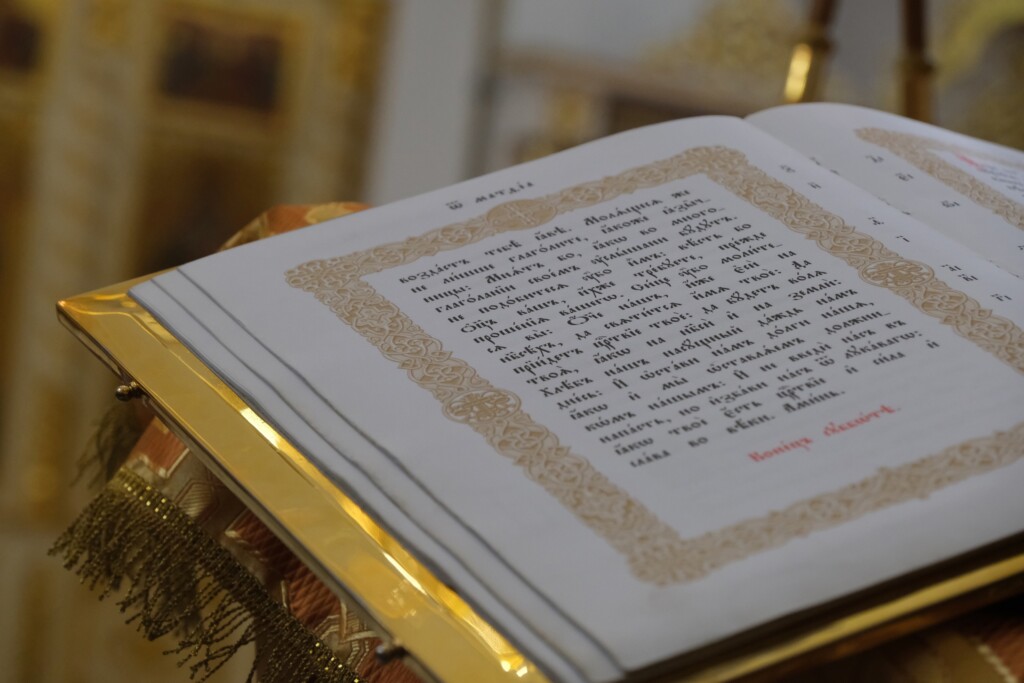 Ѿ матѳїа
воздастъ тебѣ ꙗ҆вѣ. Молѧщиѧ же
не ли́шше глаго́лите, ꙗ҆́коже ꙗ҆зы́ч-
ницы: мнѧ́тъ бо, ꙗ҆́кѡ во мно́го-
глаго́ланїи свое́мъ ᲂу҆слы́шани бꙋ́дꙋтъ.
Не подо́битесѧ ᲂу҆̀бо и҆̀мъ: вѣ́сть бо
Ѻ҆ц҃ъ ва́шъ, и҆́хже тре́бꙋете, пре́жде
проше́нїѧ ва́шегѡ. Си́це ᲂу҆̀бо моли́те-
сѧ вы̀: Ѻ҆́ч҃е на́шъ, и҆́же є҆сѝ на
нб҃сѣ́хъ, да ст҃и́тсѧ и҆́мѧ твоѐ: да
прїи́детъ црⷭ҇твїе твоѐ: да бꙋ́детъ во́лѧ
твоѧ̀, ꙗ҆́кѡ на нб҃сѝ и҆ на землѝ:
хлѣ́бъ на́шъ насꙋ́щный да́ждь на́мъ
дне́сь: и҆ ѡ҆ста́ви на́мъ до́лги на́шѧ,
ꙗ҆́кѡ и҆ мы̀ ѡ҆ставлѧ́емъ должни-
кѡ́мъ на́шымъ: и҆ не введѝ на́съ въ
напа́сть, но и҆зба́ви на́съ ѿ лꙋка́вагѡ:
ꙗ҆́кѡ твоѐ є҆́сть црⷭ҇твїе и҆ си́ла и҆
сла́ва во вѣ́ки. А҆ми́нь.
Коне́цъ сꙋббѡ́тѣ.